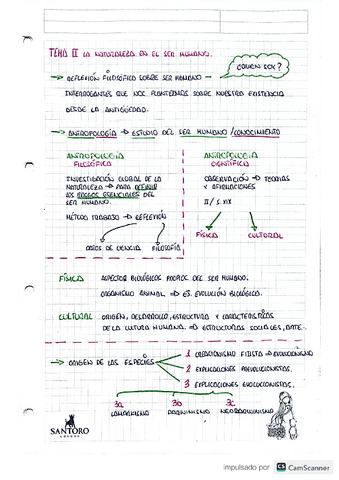 TEMA II LA NATURALEZA EN EL SER HUMANO.
¿QUIEN SOY?
→ REFLEXIÓN FILOSÓFICA SOBRE SER HUMANO
INTERROGANTES QUE NOS PLANTEAMOS SOBRE NUESTRA EXISTENCIA
DESDE LA ANTIGÜEDAD.
→ ANTROPOLOGÍA → ESTUDIO DEL SER HUMANO/CONOCIMIENTO
ANTROPOLOGÍA
FILOSÓFICA
INVESTIGACIÓN GLOBAL DE LA
NATURALEZA → PARA DEFINIR
LOS RASGOS ESENCIALES DEL
SER HUMANO.
MÉTODO TRABAJO → REFLEXIÓN
DATOS DE CIENCIA
FILOSOFÍA
ANTROPOLOGÍA
CIENTÍFICA
OBSERVACIÓN → TEORIAS
Y AFIRMACIONES
II/ S. XIX
FÍSICA
CULTURAL
FÍSICA ASPECTOS BIOLÓGICOS PROPIOS DEL SER HUMANO.
ORGANISMO ANIMAL → EJ. EVOLUCIÓN BIOLÓGICA.
CULTURAL ORIGEN, DESARROLLO, ESTRUCTURA Y CARACTERÍSTICAS
DE LA CULTURA HUMANA → ESTRUCTURAS SOCIALES, ARTE..
→ ORIGEN DE LAS ESPECIES
1 CREACIONISMO FIJISTA → EVOLUCIONISMO
2 EXPLICACIONES PREEVOLUCIONISTAS.
3 EXPLICACIONES EVOLUCIONISTAS.
3a 3b 3c
LAMARKISMO DARWINISMO NEODARWINISMO
SANTORO
LONDON
impulsado por CS CamScanner